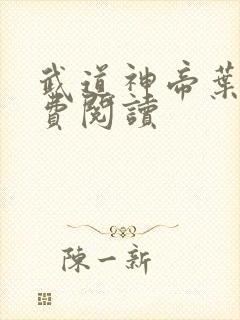 武道神帝葉
費閱讀
陳一新